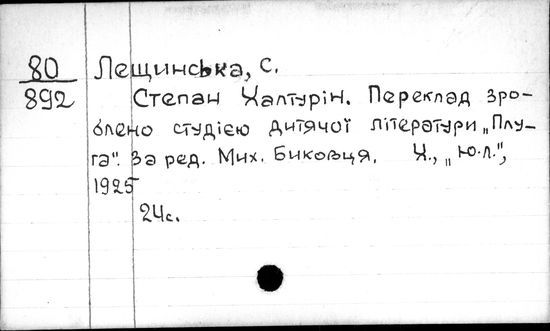 80
892
Лещинська, С.
Степан Халтурін. Переклад зро-
блено студією дитячої літератури „Плу-
га". За ред. Мих. Биковця. Х., „Ю.л.",
1925
24с.